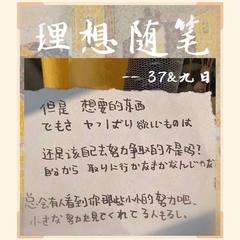 理想随笔
-- 37&九日
但是 想要的东西
でもさ やっぱり欲しいものは
还是该自己去努力争取的不是吗?
自ら 取りに行かなきゃなんじゃのな
总会有人看到你那些小小的努力吧、
小さな努力を見てくれてる人もるし。